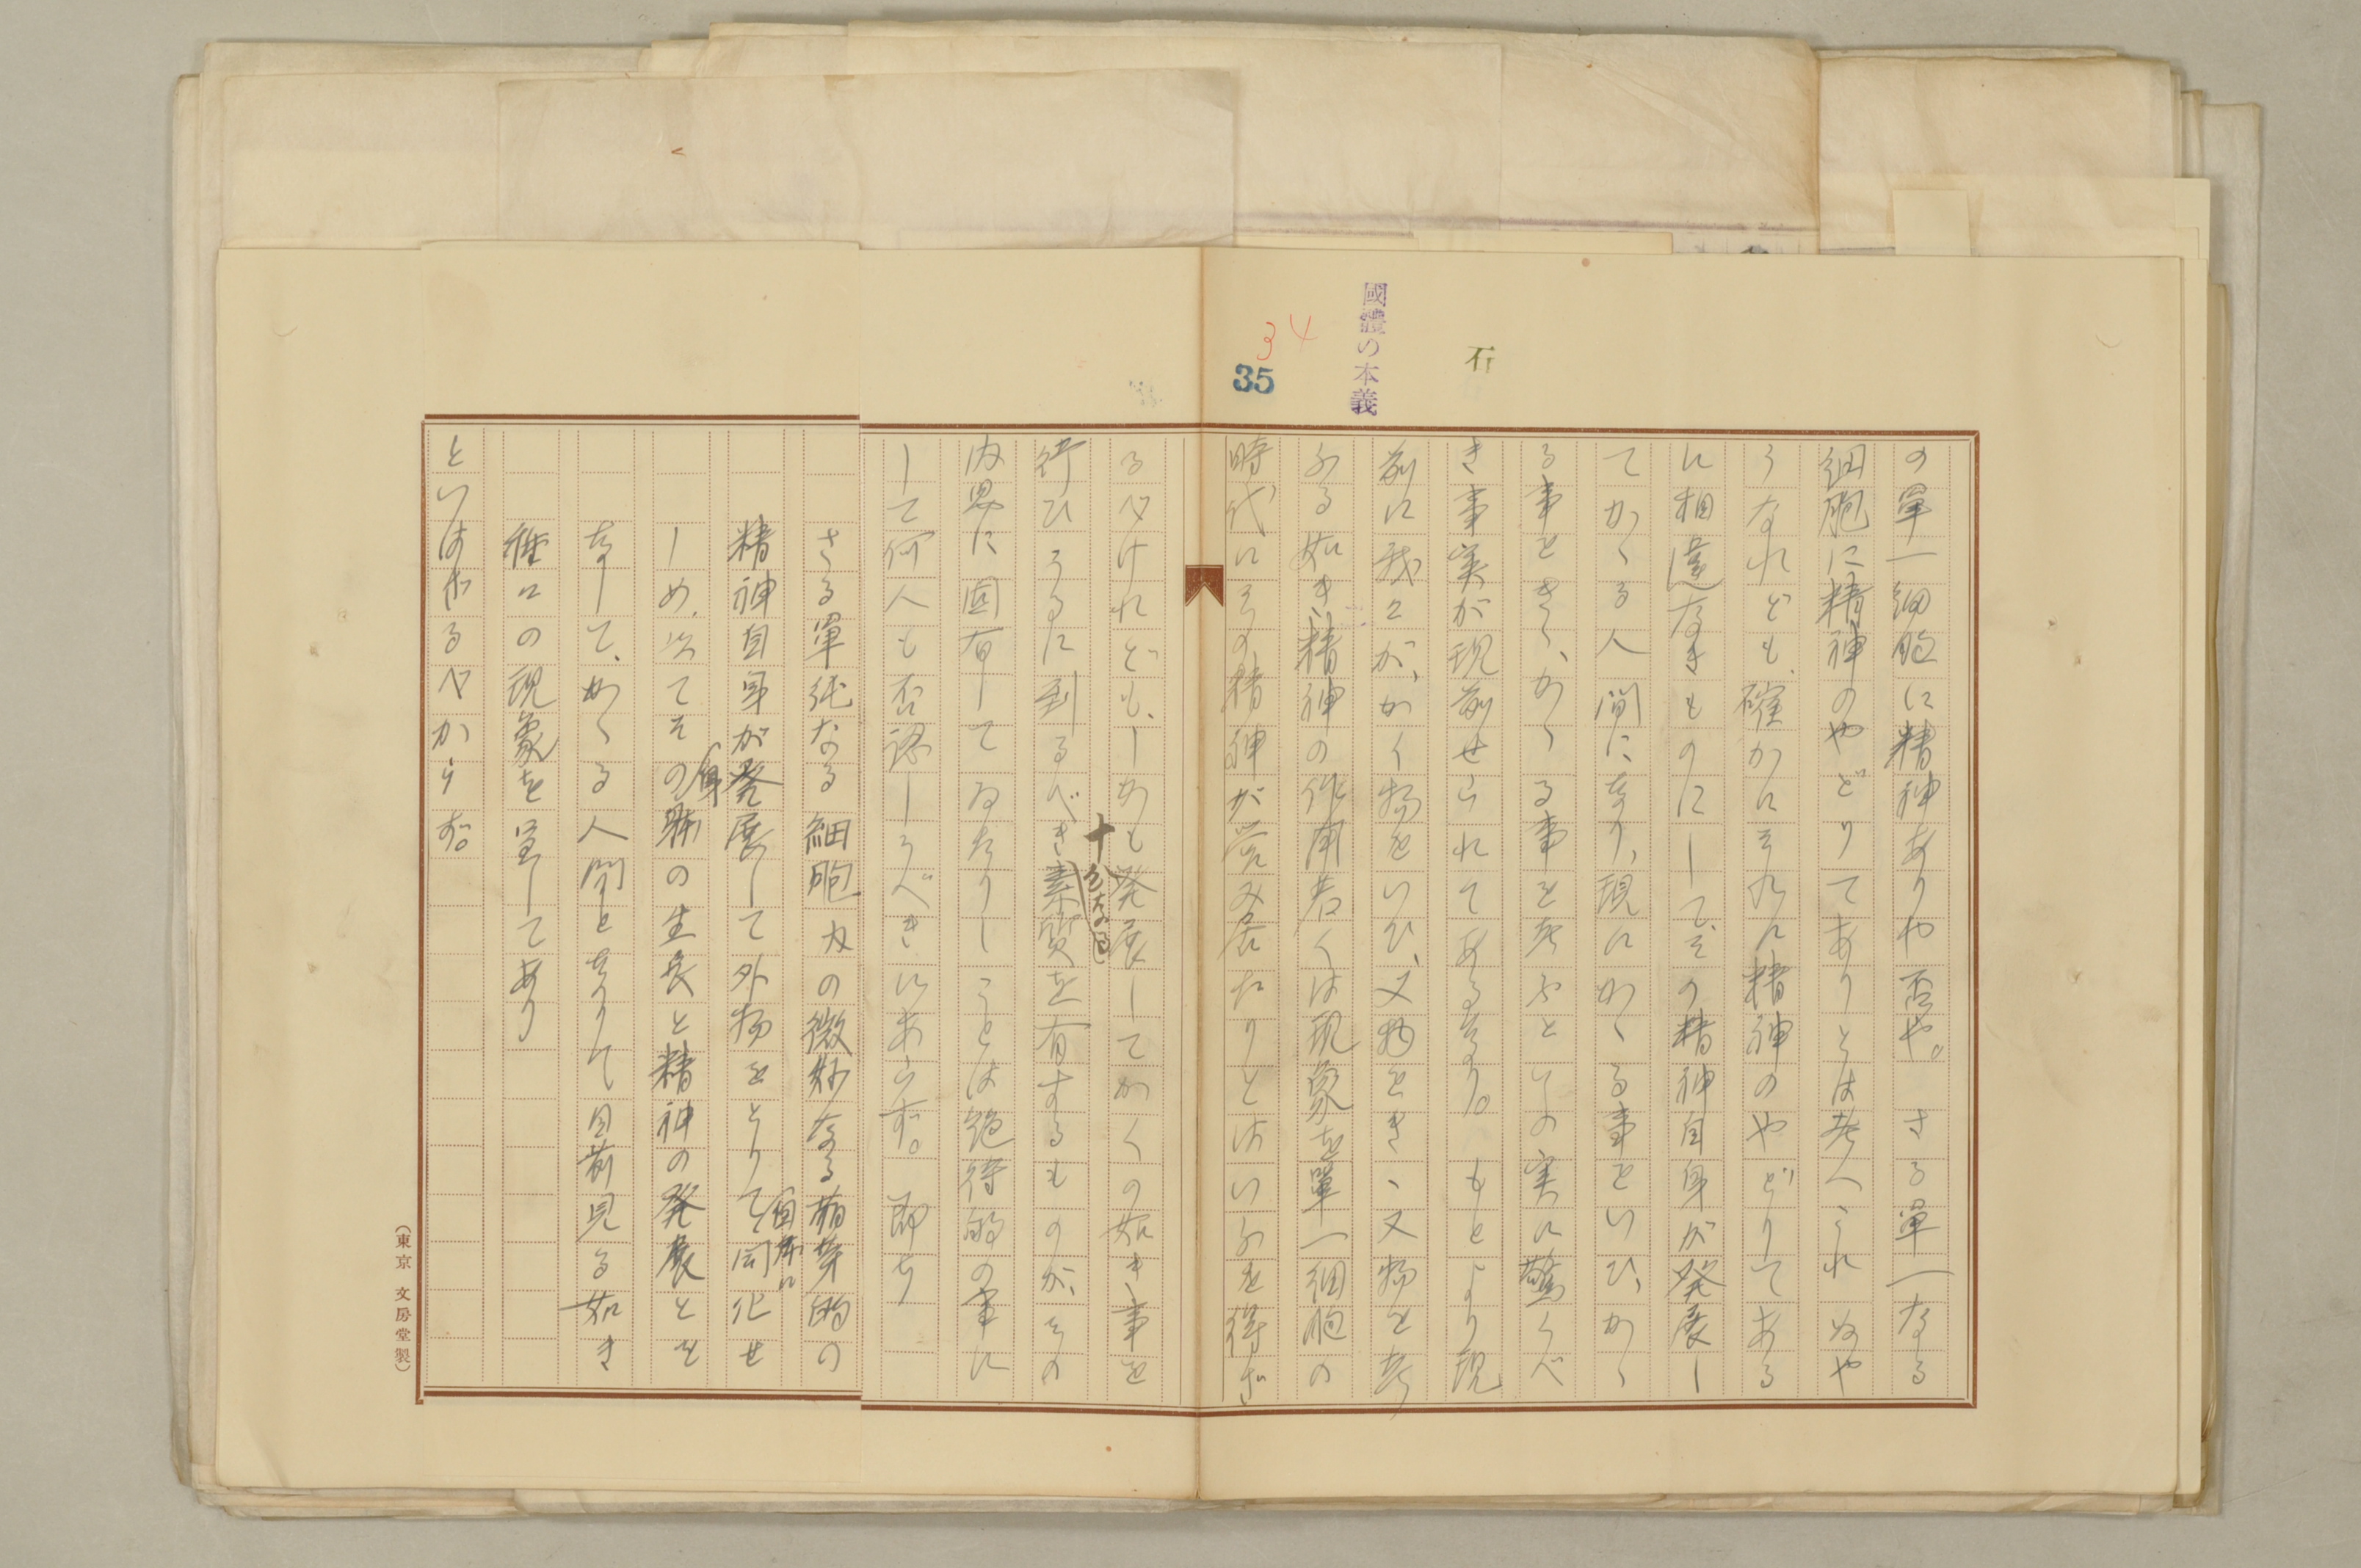 國體の本義
石
34
35
の單一細胞に精神ありや否や。さる單一なる
細胞に精神のやどりてありとは考へられぬや
うなれども、確かにそれに精神のやどりてある
に相違なきものにして、その精神自身が発展し
てかゝる人間になり、現にかゝる事をいひ、かゝ
る事をきゝ、かゝる事を考ふとしの実に驚くべ
き事実が現前せられてあるなり。もとより現
前に我々が、かく物をいひ、又物をきゝ又物を考
ふる如き精神の作用若くは現象を單一細胞の
時代にその精神が営み居たりとはいふを得ざ
るべけれども、しかも発展してかくの如き事を
行ひうるに到るべき十分なる素質を有するものが、その
内界に固有してゐたりしことは絶待的の事に
して何人も否認しうべきにあらず。即ち
さる單純なる細胞内の微妙なる萌芽的の
精神自身が発展して外物をとりて自体に同化せ
しめ、以てその身躰の生長と精神の発展とを
なして、かゝる人間となりて目前見る如き
種々の現象を呈してあり
といはざるべからず。
(東京 文房堂製)